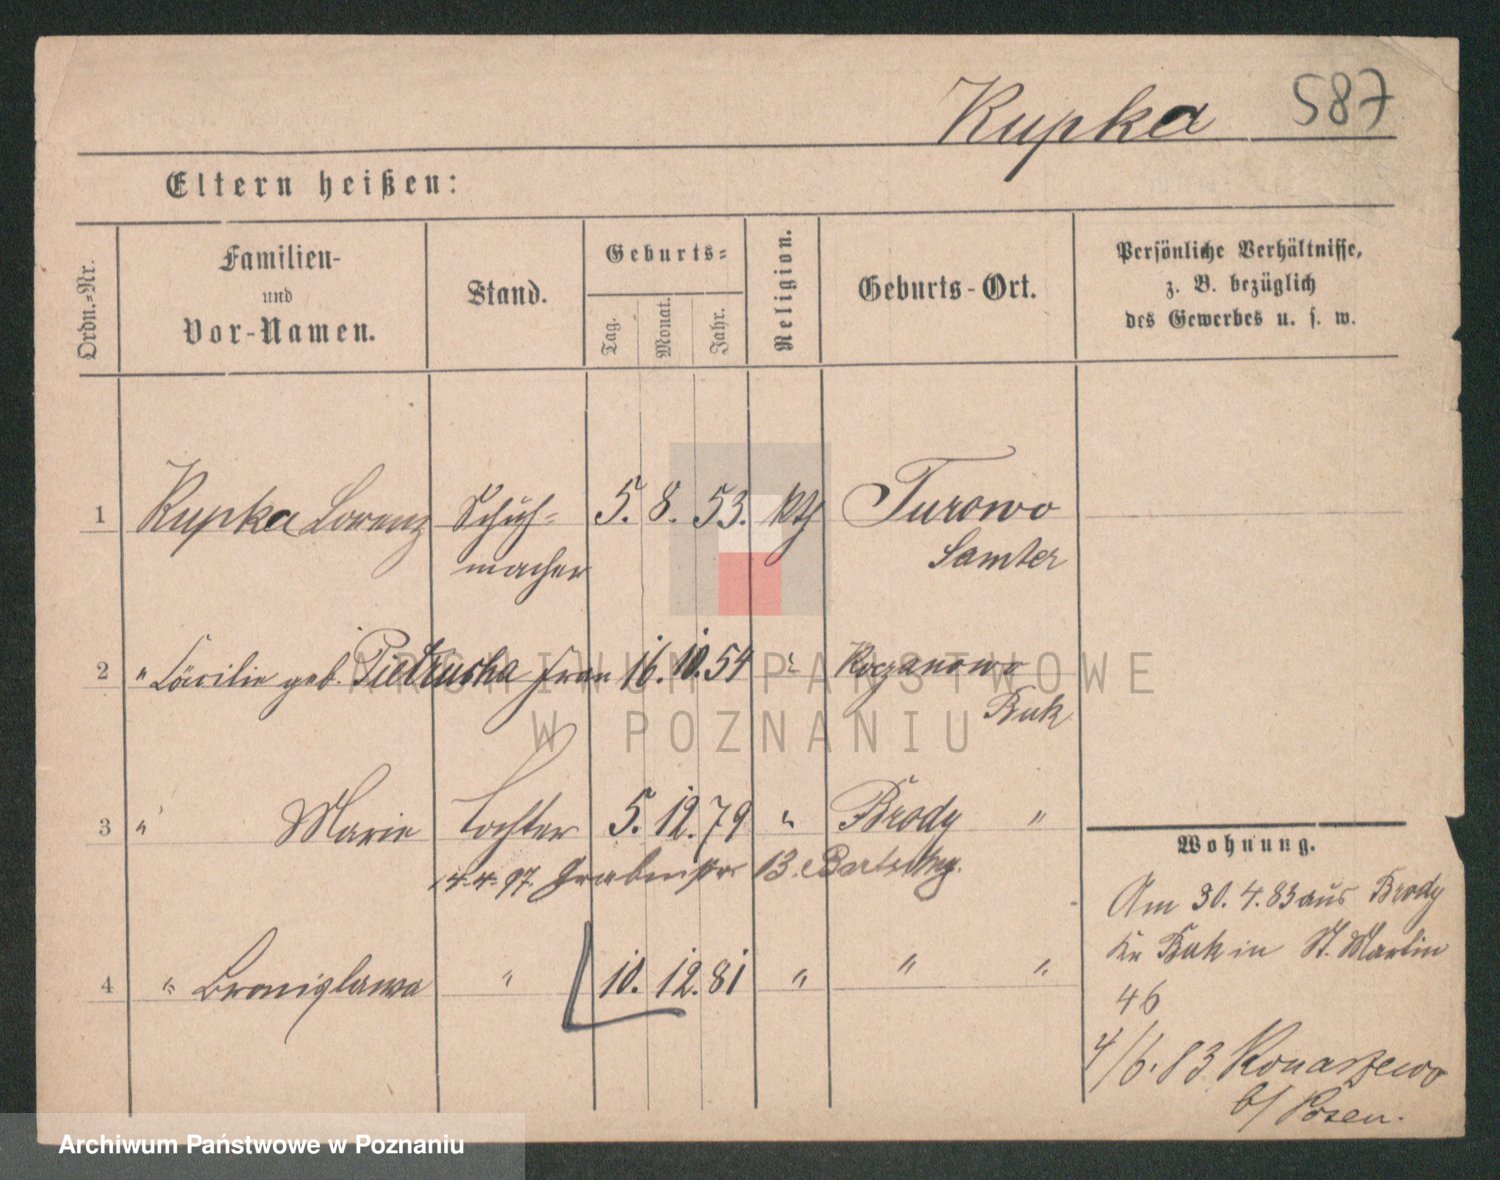 Kupka 587
Eltern heißen:
Ordn.-Nr.
Familien-
und
Vor-Namen.
Stand.
Geburts-
Tag.
Monat.
Jahr.
Religion.
Geburts-Ort.
Persönliche Verhältnisse,
z. B. bezüglich
des Gewerbes u. s. w.
1 Kupka Lorenz Schuh- 5. 8. 53. kth Turowo
macher Samter
2 " Cäcilie geb. Pietruska Frau 16. 10. 54 " Koczanowo
Buk
3 " Marie Tochter 5. 12. 79 " Brody "
4.4.97 Grabenstr. 13.
4 " Bronislawa " 10. 12. 81 " " "
Wohnung.
Am 30. 4. 83 aus Brody
Kr Buk in St. Martin
46
4/6. 83 Konarzewo
b/ Posen.
ARCHIWUM PAŃSTWOWE
W POZNANIU
Archiwum Państwowe w Poznaniu